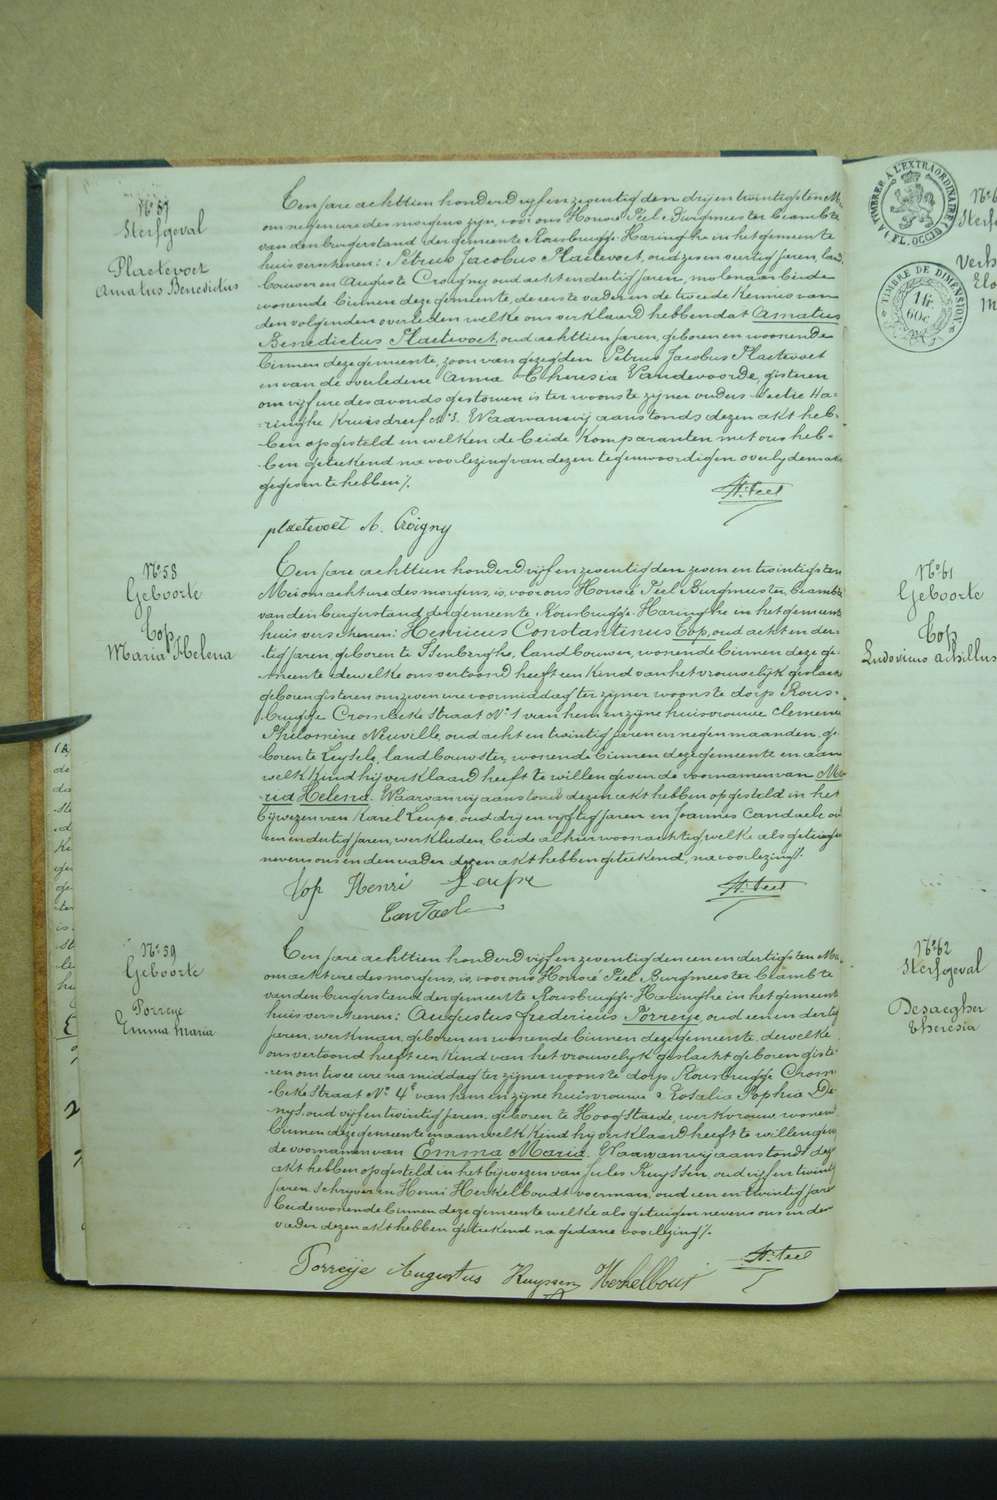 N° 57
Sterfgeval
Plaetevoet
Amatus Benedictus
Ten jare achttien honderd vijf en zeventig den drij en twintigsten Mei
om negen ure des morgens zijn, voor ons Honoré Peel Burgmeester beambte
van den burgerstand der gemeente Rousbrugge-Haringhe in het gemeente
huis verschenen: Petrus Jacobus Plaetevoet, oud zes en veertig jaren, land
bouwer en Auguste Croigny oud acht en dertig jaren, molenaar beide
wonende binnen deze gemeente, de eerste vader en de tweede kennis van
den volgenden overleden welke ons verklaard hebben dat Amatus
Benedictus Plaetevoet, oud achttien jaren, geboren en woonende
binnen deze gemeente, zoon van gezegden Petrus Jacobus Plaetevoet
en van de overledene Anna Theresia Vandevoorde, gisteren
om vijf ure des avonds gestorven is ter woonste zijner ouders sectie Ha-
ringhe Kruisdreef N° 3. Waarvan wij aanstonds dezen akt heb-
ben opgesteld en welken de beide komparanten met ons heb-
ben geteekend na voorlezing van dezen tegenwoordigen overlijdensakt
gegeven te hebben/.
H. Peel
plaetevoet A. Croigny
N° 58
Geboorte
Top
Maria Helena
Ten jare achttien honderd vijf en zeventig den zeven en twintigsten
Mei om acht ure des morgens, is, voor ons Honoré Peel Burgmeester, beambte
van den burgerstand der gemeente Rousbrugge-Haringhe in het gemeente
huis verschenen: Henricus Constantinus Top, oud acht en der-
tig jaren, geboren te Isenberghe, landbouwer, wonende binnen deze ge-
meente dewelke ons vertoond heeft een kind van het vrouwelijk geslacht
geboren gisteren om zeven ure voormiddag ter zijner woonste dorp Rous-
brugge Crombeke Straat N° 1 van hem en zijne huisvrouwe Clemence
Philomène Neuville, oud acht en twintig jaren en negen maanden, ge-
boren te Leysele, landbouwster, wonende binnen deze gemeente en aan
welk kind hij verklaard heeft te willen geven de voornamen van Ma-
ria Helena. Waarvan wij aanstonds dezen akt hebben opgesteld in het
bijwezen van Karel Leupe, oud drij en vijftig jaren en Joannes Candaele oud
een en dertig jaren, werklieden, beide alhier woonachtig, welke als getuigen
nevens ons en den vader dezen akt hebben geteekend, na voorlezing/.
Top Henri Leupe
H. Peel
Candaele
N° 59
Geboorte
Torreye
Emma Maria
Ten jare achttien honderd vijf en zeventig den een en dertigsten Mei
om acht ure des morgens, is, voor ons Honoré Peel Burgmeester beambte
van den burgerstand der gemeente Rousbrugge-Haringhe in het gemeente
huis verschenen: Augustus Fredericus Torreye, oud een en dertig
jaren, werkman, geboren en wonende binnen deze gemeente, dewelke
ons vertoond heeft een kind van het vrouwelijk geslacht geboren giste-
ren om twee ure namiddag ter zijner woonste dorp Rousbrugge Crom-
beke Straat N° 4e van hem en zijne huisvrouwe Rosalia Sophia De
nys, oud vijf en twintig jaren, geboren te Hoogstaede, werkvrouw, wonende
binnen deze gemeente en aan welk kind hij verklaard heeft te willen geven
de voornamen van Emma Maria. Waarvan wij aanstonds dezen
akt hebben opgesteld in het bijwezen van Jules Ruyssen, oud vijf en twintig
jaren schrijver en Henri Herkelboudt voerman, oud een en twintig jaren
beide wonende binnen deze gemeente welke als getuigen nevens ons en den
vader dezen akt hebben geteekend na gedane voorlezing/.
H. Peel
Torreije Augustus Ruyssen Herkelbout
TIMBRE A L'EXTRAORDINAIRE
FL. OCCID
TIMBRE DE DIMENSION
1 fr
60c
N° 61
Geboorte
Top
Ludovicus Achillus
N° 62
Sterfgeval
Desaegher
Theresia